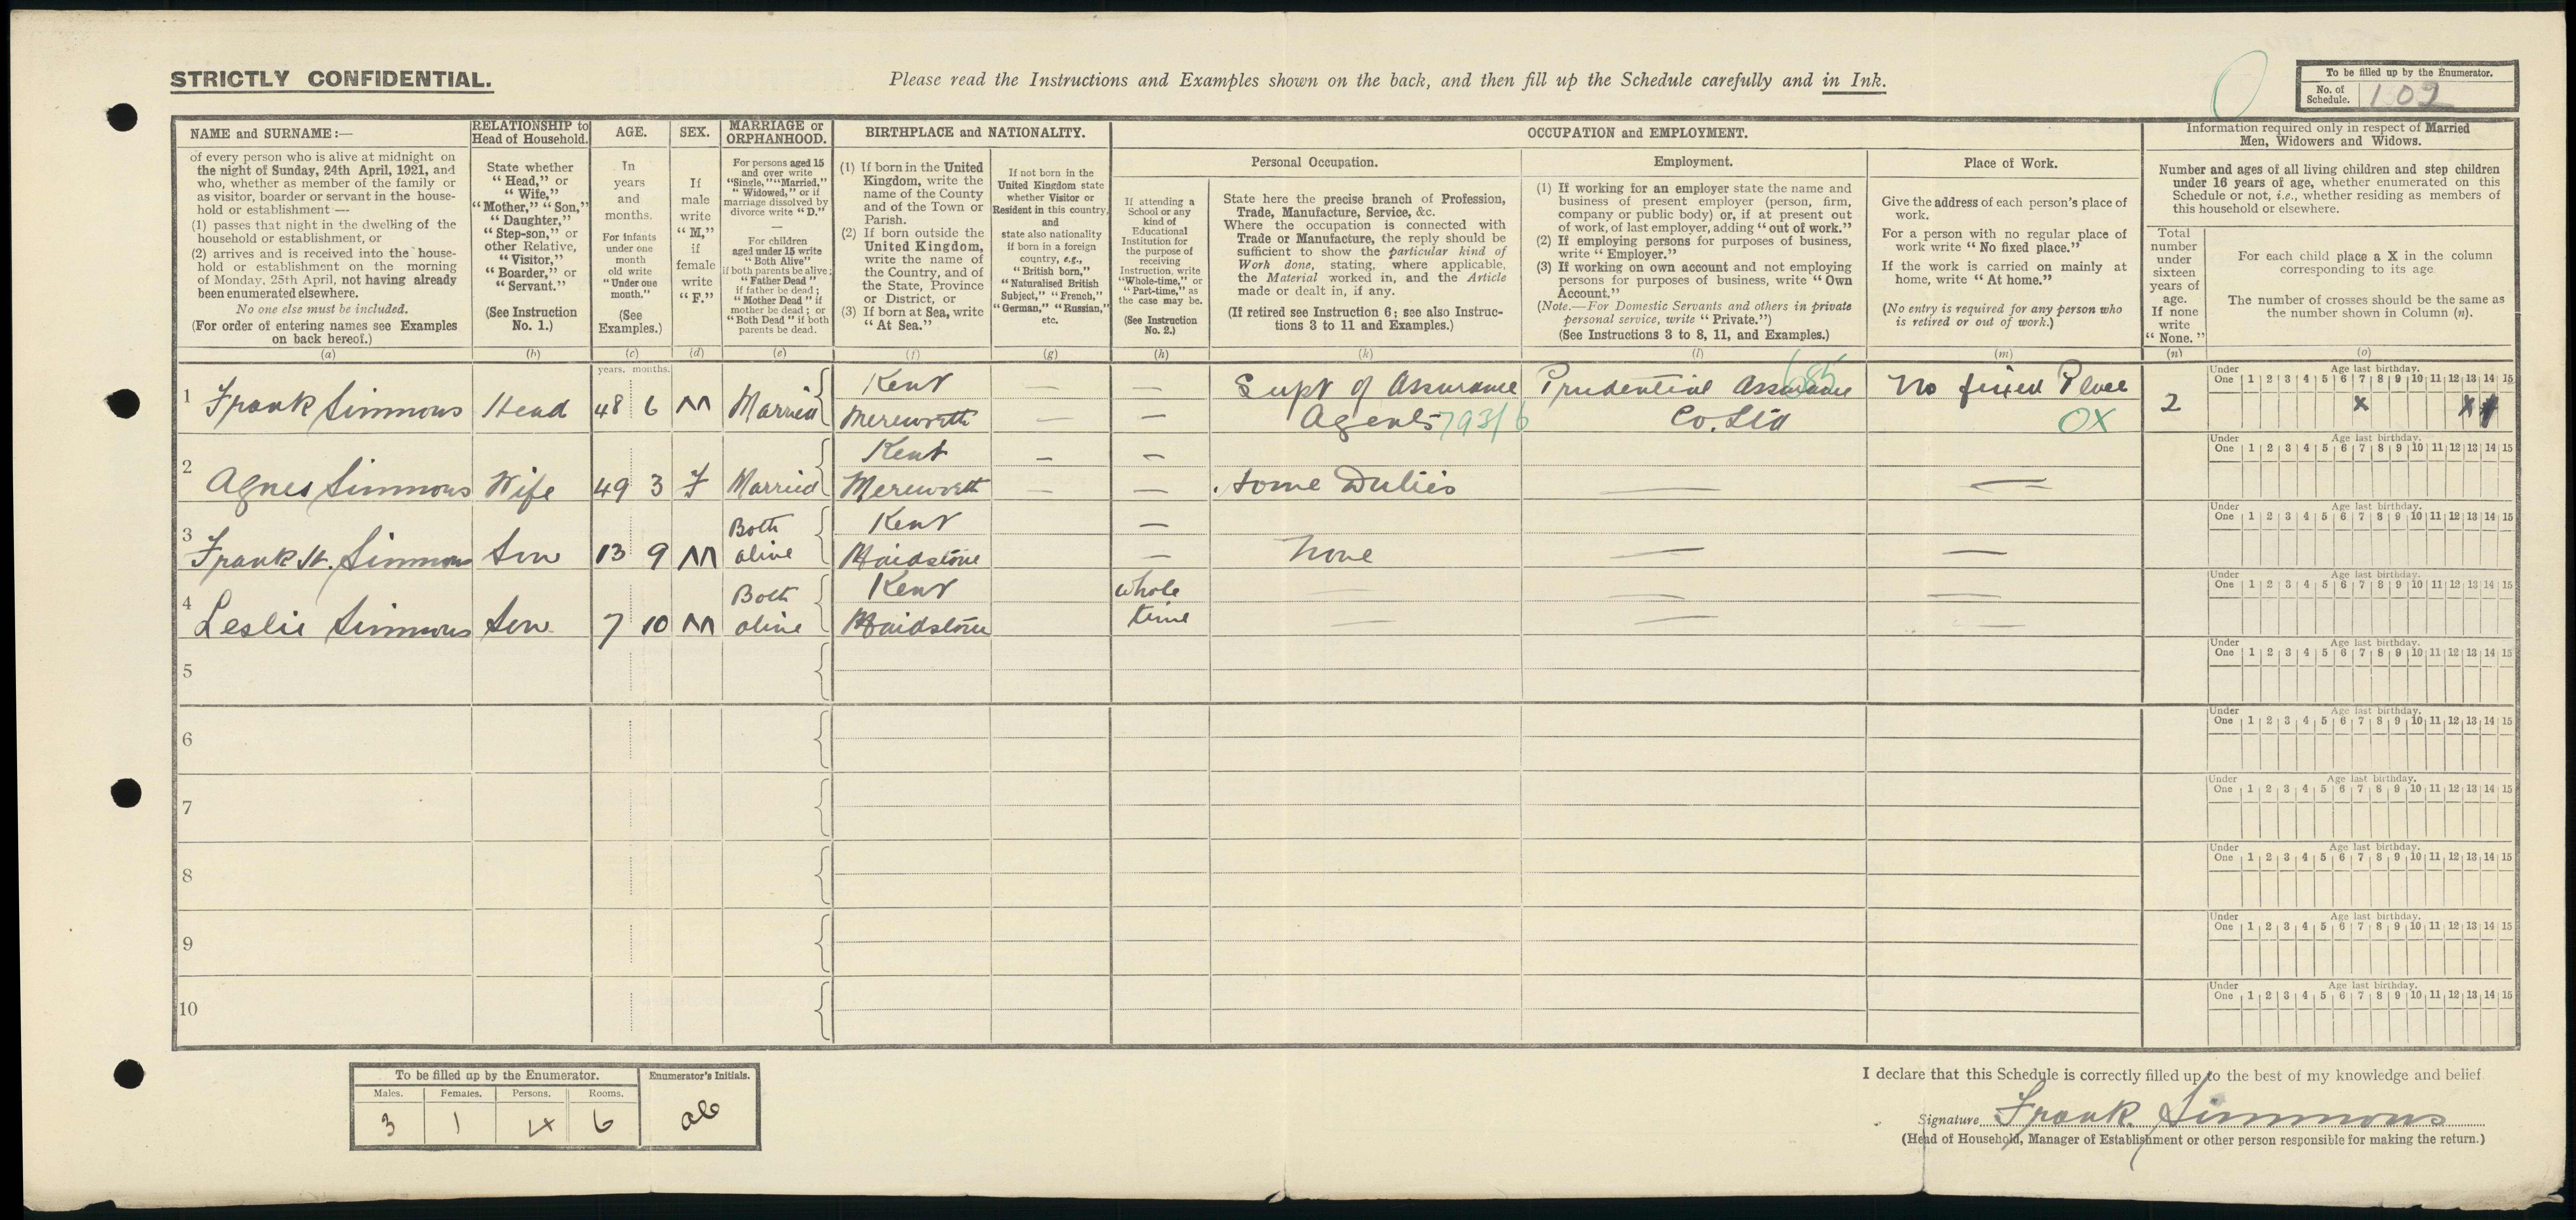 STRICTLY CONFIDENTIAL.
Please read the Instructions and Examples shown on the back, and then fill up the Schedule carefully and in Ink.
To be filled up by the Enumerator.
No. of Schedule. 102
NAME and SURNAME:—
of every person who is alive at midnight on
the night of Sunday, 24th April, 1921, and
who, whether as member of the family or
as visitor, boarder or servant in the house-
hold or establishment —
(1) passes that night in the dwelling of the
household or establishment, or
(2) arrives and is received into the house-
hold or establishment on the morning
of Monday, 25th April, not having already
been enumerated elsewhere.
No one else must be included.
(For order of entering names see Examples
on back hereof.)
(a)
RELATIONSHIP to
Head of Household.
State whether
“Head,” or
“Wife,”
“Mother,” “Son,”
“Daughter,”
“Step-son,” or
other Relative,
“Visitor,”
“Boarder,” or
“Servant.”
(See Instruction
No. 1.)
(b)
AGE.
In
years
and
months.
For infants
under one
month
old write
“Under one
month.”
(See
Examples.)
(c)
SEX.
If
male
write
“M,”
if
female
write
“F.”
(d)
MARRIAGE or
ORPHANHOOD.
For persons aged 15
and over write
“Single,” “Married,”
“Widowed,” or if
marriage dissolved by
divorce write “D.”
—
For children
aged under 15 write
“Both Alive”
if both parents be alive;
“Father Dead”
if father be dead;
“Mother Dead” if
mother be dead; or
“Both Dead” if both
parents be dead.
(e)
BIRTHPLACE and NATIONALITY.
(1) If born in the United
Kingdom, write the
name of the County
and of the Town or
Parish.
(2) If born outside the
United Kingdom,
write the name of
the Country, and of
the State, Province
or District, or
(3) If born at Sea, write
“At Sea.”
(f)
If not born in the
United Kingdom state
whether Visitor or
Resident in this country,
and
state also nationality
if born in a foreign
country, e.g.,
“British born,”
“Naturalised British
Subject,” “French,”
“German,” “Russian,”
etc.
(g)
OCCUPATION and EMPLOYMENT.
If attending a
School or any
kind of
Educational
Institution for
the purpose of
receiving
Instruction, write
“Whole-time,” or
“Part-time,” as
the case may be.
(See Instruction
No. 2.)
(h)
Personal Occupation.
State here the precise branch of Profession,
Trade, Manufacture, Service, &c.
Where the occupation is connected with
Trade or Manufacture, the reply should be
sufficient to show the particular kind of
Work done, stating, where applicable,
the Material worked in, and the Article
made or dealt in, if any.
(If retired see Instruction 6; see also Instruc-
tions 3 to 11 and Examples.)
(k)
Employment.
(1) If working for an employer state the name and
business of present employer (person, firm,
company or public body) or, if at present out
of work, of last employer, adding “out of work.”
(2) If employing persons for purposes of business,
write “Employer.”
(3) If working on own account and not employing
persons for purposes of business, write “Own
Account.”
(Note.—For Domestic Servants and others in private
personal service, write “Private.”)
(See Instructions 3 to 8, 11, and Examples.)
(l)
Place of Work.
Give the address of each person's place of
work.
For a person with no regular place of
work write “No fixed place.”
If the work is carried on mainly at
home, write “At home.”
(No entry is required for any person who
is retired or out of work.)
(m)
Information required only in respect of Married
Men, Widowers and Widows.
Number and ages of all living children and step children
under 16 years of age, whether enumerated on this
Schedule or not, i.e., whether residing as members of
this household or elsewhere.
Total
number
under
sixteen
years of
age.
If none
write
“None.”
(n)
For each child place a X in the column
corresponding to its age
The number of crosses should be the same as
the number shown in Column (n).
(o)
years. months.
Under One Age last birthday.
1 2 3 4 5 6 7 8 9 10 11 12 13 14 15
1 Frank Simmons Head 48 6 M Married Kent Mereworth — — Supt of Assurance Agents 793/6 Prudential Assurance Co. Ltd 685 No fixed Place OX 2 X X
Under One Age last birthday.
1 2 3 4 5 6 7 8 9 10 11 12 13 14 15
2 Agnes Simmons Wife 49 3 F Married Kent Mereworth — — Home Duties — —
Under One Age last birthday.
1 2 3 4 5 6 7 8 9 10 11 12 13 14 15
3 Frank H. Simmons Son 13 9 M Both alive Kent Maidstone — None — —
Under One Age last birthday.
1 2 3 4 5 6 7 8 9 10 11 12 13 14 15
4 Leslie Simmons Son 7 10 M Both alive Kent Maidstone Whole time — — —
Under One Age last birthday.
1 2 3 4 5 6 7 8 9 10 11 12 13 14 15
5
Under One Age last birthday.
1 2 3 4 5 6 7 8 9 10 11 12 13 14 15
6
Under One Age last birthday.
1 2 3 4 5 6 7 8 9 10 11 12 13 14 15
7
Under One Age last birthday.
1 2 3 4 5 6 7 8 9 10 11 12 13 14 15
8
Under One Age last birthday.
1 2 3 4 5 6 7 8 9 10 11 12 13 14 15
9
Under One Age last birthday.
1 2 3 4 5 6 7 8 9 10 11 12 13 14 15
10
Under One Age last birthday.
1 2 3 4 5 6 7 8 9 10 11 12 13 14 15
To be filled up by the Enumerator.
Enumerator's Initials.
Males. Females. Persons. Rooms.
3 1 4 6
I declare that this Schedule is correctly filled up to the best of my knowledge and belief
Signature Frank Simmons
(Head of Household, Manager of Establishment or other person responsible for making the return.)